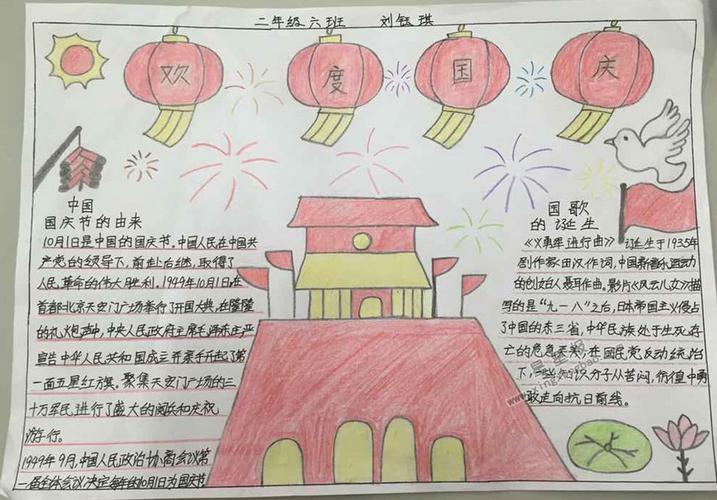 二年级六班 刘钰琪
欢度国庆
中国
国庆节的由来
10月1日是中国的国庆节。中国人民在中国共
产党的领导下，前赴后继，取得了
人民革命的伟大胜利。1949年10月1日在
首都北京天安门广场举行了开国大典，在隆隆
的礼炮声中，中央人民政府主席毛泽东庄严
宣告中华人民共和国成立并亲手升起了第
一面五星红旗。聚集天安门广场的三
十万军民进行了盛大的阅兵和庆祝
游行。
1949年9月，中国人民政治协商会议第
一届全体会议决定每年的10月1日为国庆节
国歌
的诞生
《义勇军进行曲》诞生于1935年
剧作家田汉作词，中国新音乐运动
的创始人聂耳作曲。影片《风云儿女》描
写的是“九一八”之后，日本帝国主义侵占
了中国的东三省，中华民族处于生死存
亡的危急关头，在国民党反动统治
下，一些知识分子从苦闷，彷徨中勇
敢走向抗日前线。